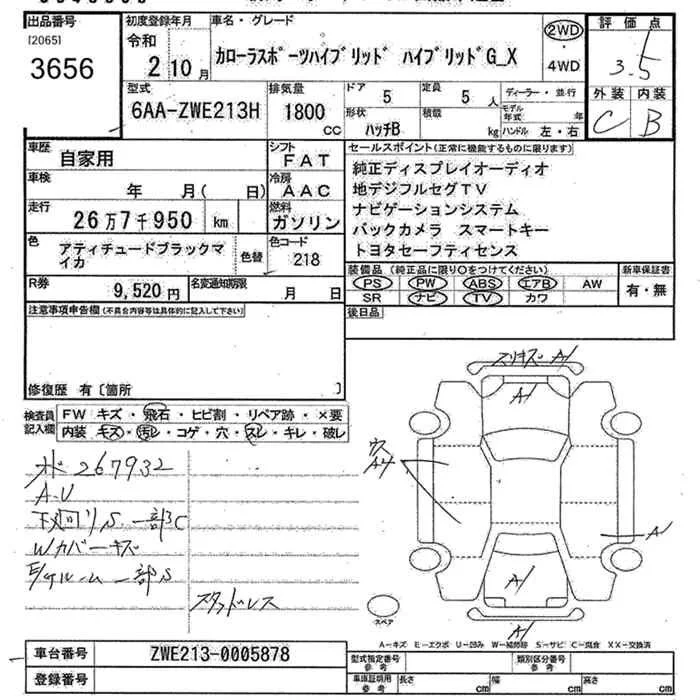 出品番号
[2065]
3656
初度登録年月
令和
2年10月
車名・グレード
カローラスポーツハイブリッド ハイブリッドG_X
2WD
・
4WD
評価点
3.5
外装 内装
C B
型式
6AA-ZWE213H
排気量
1800
cc
ドア
5
定員
5人
形状
ハッチB
積載
kg
ディーラー・並行
モデル年式 年
ハンドル 左・右
車歴
自家用
シフト
FAT
車検
年 月( 日)
冷房
AAC
走行
26万7千950km
燃料
ガソリン
色
アティチュードブラックマイカ
色替
色コード
218
R券
9,520円
名変通知期限
月 日
セールスポイント(正常に機能するものに限ります)
純正ディスプレイオーディオ
地デジフルセグTV
ナビゲーションシステム
バックカメラ スマートキー
トヨタセーフティセンス
装備品(純正品に限り○をつけてください)
PS PW ABS エアB AW
SR ナビ TV カワ
新車保証書
有・無
後日品
注意事項申告欄(不具合内容等は具体的に記入して下さい)
修復歴 有〔箇所 〕
検査員記入欄
FW キズ・飛石・ヒビ割・リペア跡・×要
内装 キズ・汚レ・コゲ・穴・スレ・キレ・破レ
メ 267932
A.U
下回りS 一部C
Wカバーキズ
E/gルーム一部S
スタッドレス
スリキズ A1
A1
A4
A1
A1
A1
スペア
A-キズ E-エクボ U-凹み W-補修跡 S-サビ C-腐食 XX-交換済
車台番号
ZWE213-0005878
登録番号
型式指定番号
参考
類別区分番号
参考
車庫証明用
参考
長さ cm
幅 cm
高さ cm